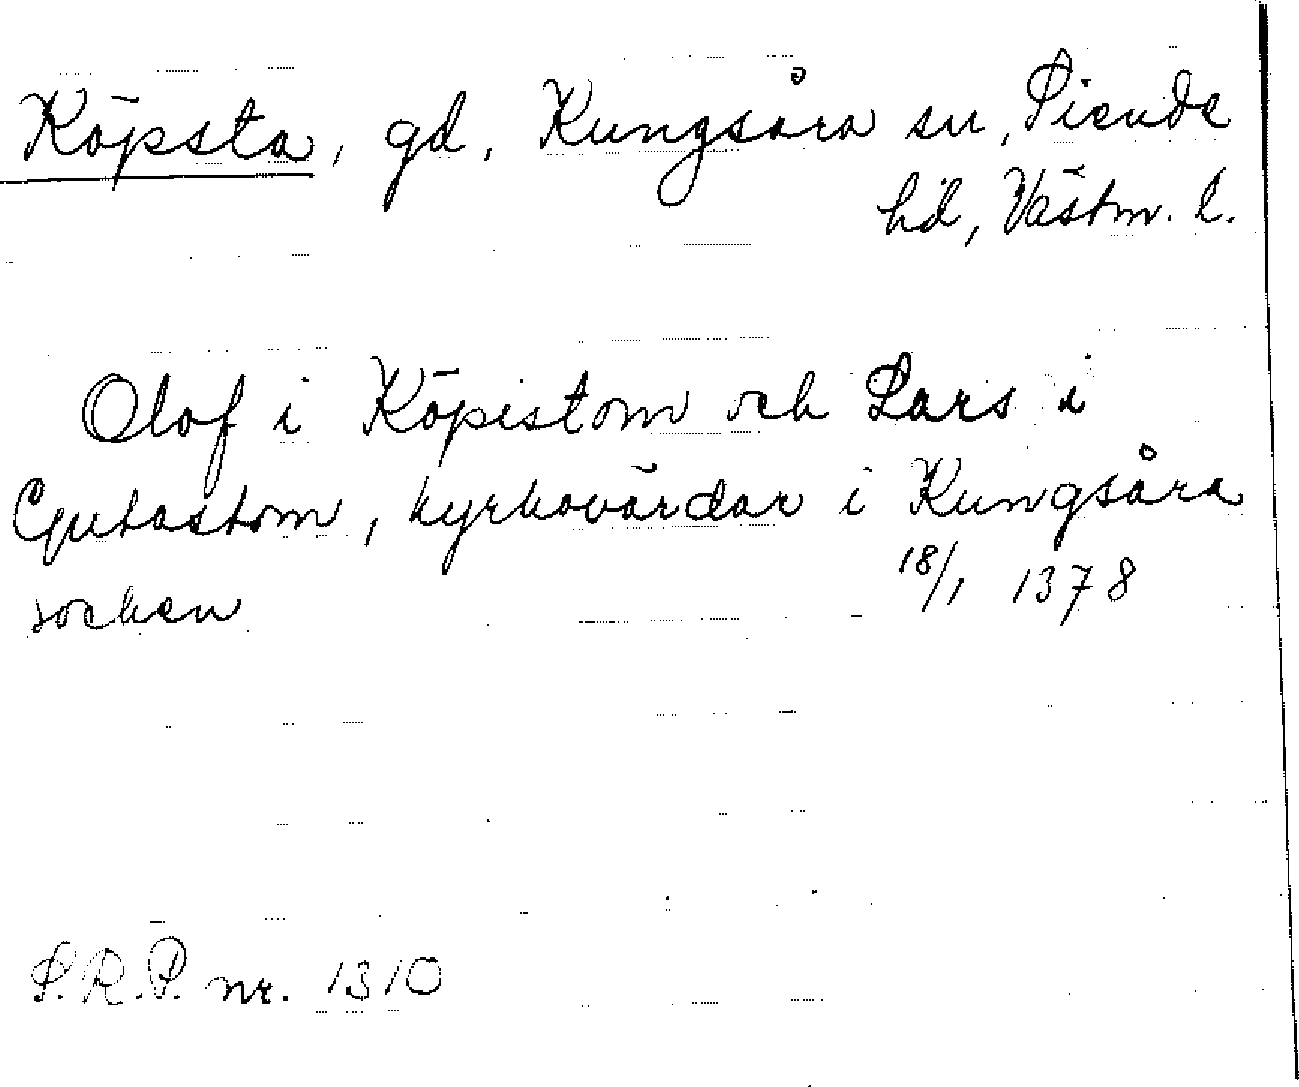 Köpsta, gd, Kungsåra sn, Siende
hd, Västm. l.
Olof i Köpistom och Lars i
Gjutastom, kyrkovärdar i Kungsåra
socken 18/1 1378
S.R.P. nr. 1310